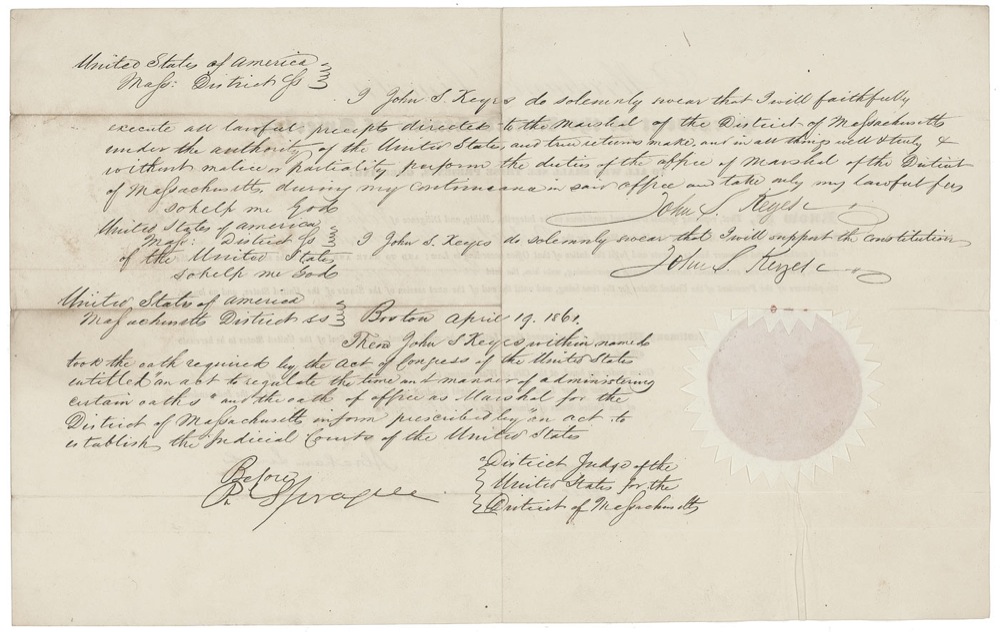 United States of America
Mass: District ss
I John S. Keyes do solemnly swear that I will faithfully
execute all lawful precepts directed to the Marshal of the District of Massachusetts
under the authority of the United States, and true returns make, and in all things well & truly &
without malice or partiality perform the duties of the office of Marshal of the District
of Massachusetts, during my continuance in said office and take only my lawful fees
so help me God
John S. Keyes
United States of America
Mass: District ss
I John S. Keyes do solemnly swear that I will support the constitution
of the United States
so help me God
John S. Keyes
United States of America
Massachusetts District ss
Boston April 19. 1861.
Then John S Keyes within named
took the oath required by the act of Congress of the United States
entitled "an act to regulate the time and manner of administering
certain oaths" and the oath of office as Marshal for the
District of Massachusetts in form prescribed by "an act to
establish the Judicial Courts of the United States
Before
P. Sprague
District Judge of the
United States for the
District of Massachusetts